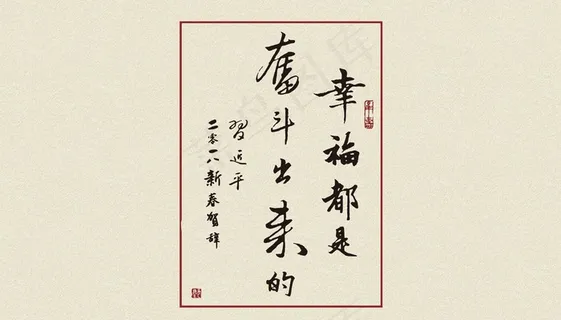 幸福都是
奮斗出来的
習近平
二零一八新春贺辞